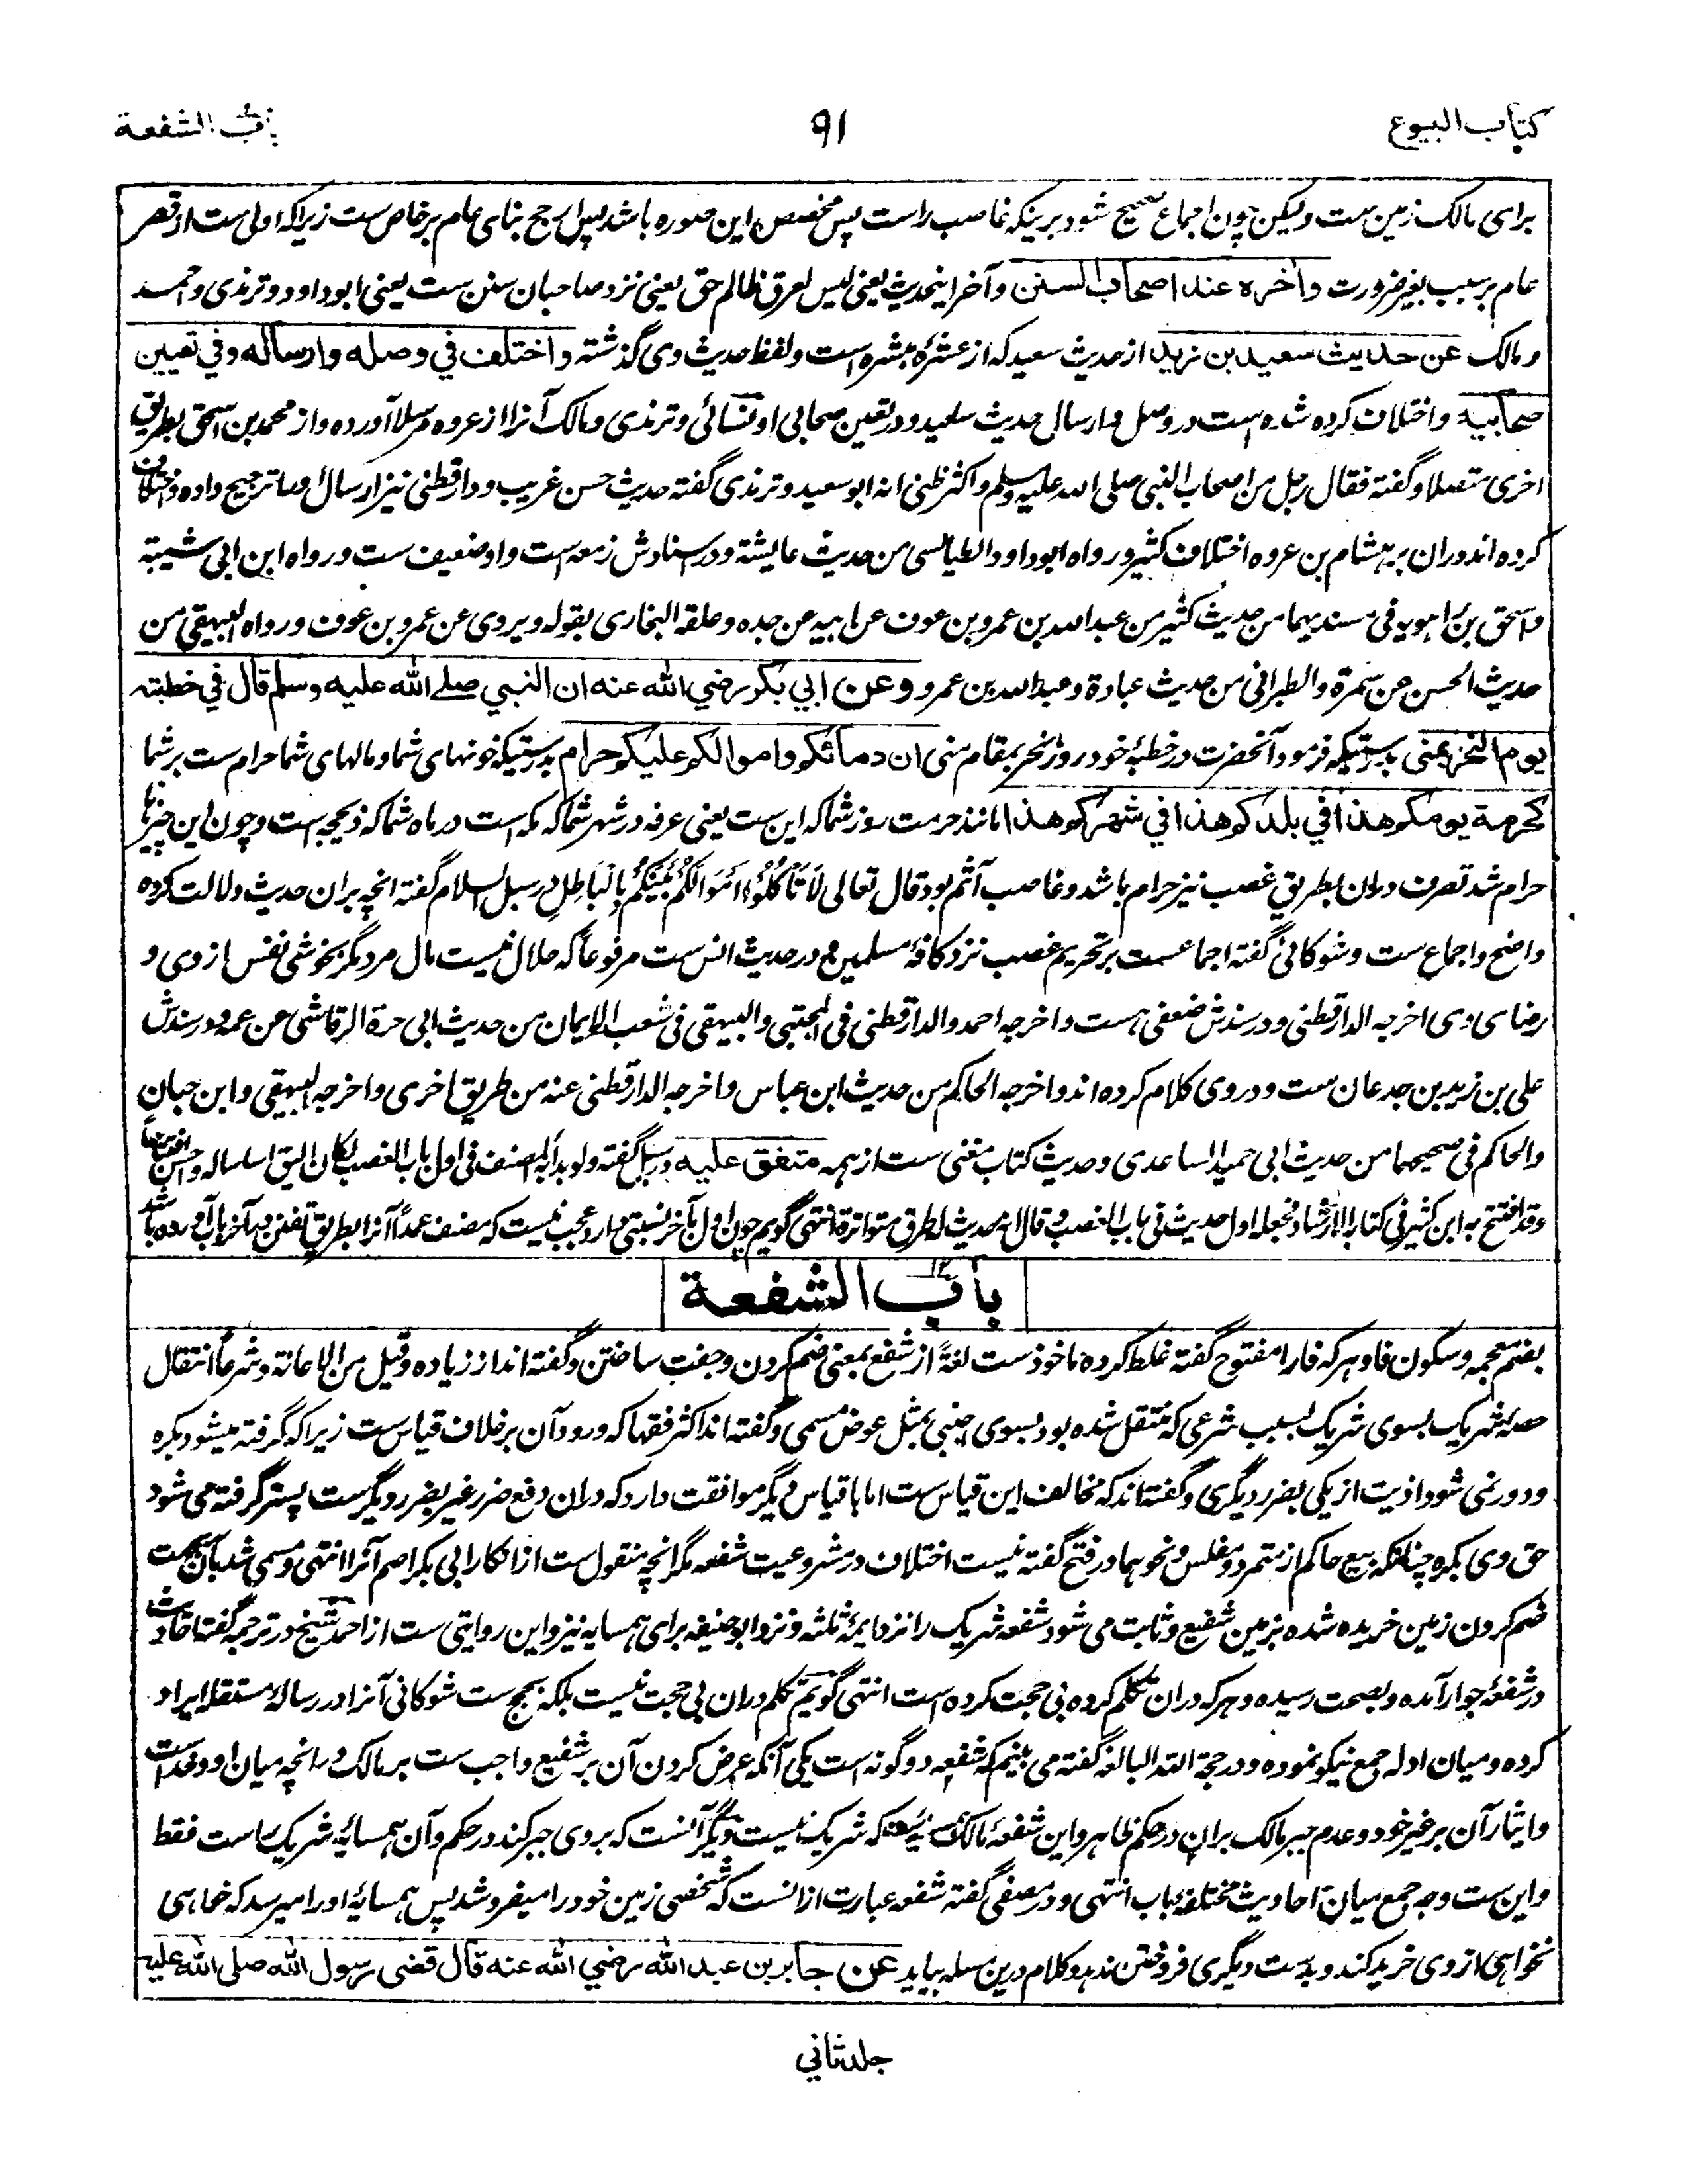 كتاب البيوع
٩١
باب الشفعة
برای مالک زمین ست ولیکن چون اجماع صحیح شود برینکه غاصب راست پس مخصص این صوره باشد پس ارجح بنای عام بر خاص ست زیراکه اولی ست از قصر
عام بر سبب بغیر ضرورت وآخره عند اصحاب السنن وآخر اینحدیث یعنی لیس لعرق ظالم حق یعنی نزد صاحبان سنن ست یعنی ابوداود وترمذی واحمد
ومالک عن حديث سعيد بن زيد از حدیث سعید که از عشرۂ مبشره است ولفظ حدیث وی گذشته واختلف في وصله وارساله وفي تعيين
صحابيه واختلاف کرده شده است در وصل وارسال حدیث سعید ودر تعین صحابی او نسائی وترمذی ومالک آنرا از عروه مرسلا آورده واز محمد بن اسحق بطریق
اخری متصلا وگفته فقال رجل من اصحاب النبی صلی الله علیه وسلم واکثر ظنی انه ابو سعید وترمذی گفته حدیث حسن غریب ودارقطنی نیز ارسال اورا ترجیح داده واختلاف
کرده اند دران بر هشام بن عروه اختلاف کثیر ورواه ابو داود الطیالسی من حدیث عایشة ودر اسنادش زمعه است واو ضعیف ست ورواه ابن ابی شیبة
واسحق بن راهویه فی مسندیهما من حدیث کثیر من عبد الله بن عمرو بن عوف عن ابیه عن جده وعلقه البخاری بقوله ویروی عن عمرو بن عوف ورواه البیهقی من
حدیث الحسن عن سمرة والطبرانی من حدیث عبادة وعبد الله بن عمرو وعن ابي بكر رضي الله عنه ان النبي صلے الله عليه وسلم قال في خطبته
يوم النحر بمنى بدرستیکه فرمود آنحضرت در خطبۂ خود روز نحر بمقام منی ان دمائكم واموالكم عليكم حرام بدرستیکه خونهای شما ومالهای شما حرام ست بر شما
كحرمة يومكم هذا في بلدكم هذا في شهركم هذا مانند حرمت روز شما که این ست یعنی عرفه در شهر شما که مکه است در ماه شما که ذیحجه است وچون این چیزها
حرام شد تصرف دران بطریق غصب نیز حرام باشد وغاصب آثم بود قال تعالی لَا تَأْكُلُوا أَمْوَالَكُمْ بَيْنَكُمْ بِالْبَاطِلِ در سبل السلام گفته انچه بران حدیث دلالت کرده
واضح واجماع ست وشوکانی گفته اجماعست بر تحریم غصب نزد کافۂ مسلمین ودر حدیث انس ست مرفوعا که حلال نیست مال مرد مگر بخوشی نفس از وی و
رضای وی اخرجه الدارقطنی ودر سندش ضعفی هست واخرجه احمد والدارقطنی فی المجتبی والبیهقی فی شعب الایمان من حدیث ابی حرة الرقاشی عن عمه ودر سندش
علی بن زید بن جدعان ست ودر وی کلام کرده اند واخرجه الحاکم من حدیث ابن عباس واخرجه الدارقطنی عنه من طریق اخری واخرجه البیهقی وابن حبان
والحاکم فی صحیحهما من حدیث ابی حمید الساعدی وحدیث کتاب مغنی ست از همه متفق عليه در سبل گفته ولو بدأ به المصنف فی اول باب الغصب لکان الیق اساسا له واحسن افتتاحا
وقد افتتح به ابن کثیر فی کتاب الارشاد فجعله اول حدیث فی باب الغصب وقال انه حدیث لطرق متواترة انتهی گویم چون اول بآخر نسبتی دارد عجب نیست که مصنف عمداً آنرا بطریق تفنن در آخر باب آورده باشد
باب الشفعة
بضم معجمه وسکون فا وهر که فا را مفتوح گفته غلط کرده ماخوذ ست لغةً از شفع بمعنی ضم کردن وجفت ساختن وگفته اند از زیاده وقیل من الاعانة وشرعاً انتقال
حصۂ شریک بسوی شریک بسبب شرعی که منتقل شده بود بسوی اجنبی بمثل عوض مسمی وگفته اند اکثر فقها که ورود آن بر خلاف قیاس ست زیراکه گرفته میشود بکره
ودور نمی شود اذیت از یکی بضرر دیگری وگفته اند که مخالف این قیاس ست اما با قیاس دیگر موافقت دارد که دران دفع ضرر غیر بضرر دیگرست پستر گرفته می شود
حق وی بکره چنانکه بیع حاکم از متمرد ومفلس ونحوهما در فتح گفته نیست اختلاف در مشروعیت شفعه مگر انچه منقول ست از انکار ابی بکر اصم آنرا انتهی ومسمی شد بآن بجهت
ضم کردن زمین خریده شده بزمین شفیع وثابت می شود شفعه شریک را نزد ایمۂ ثلثه ونزد ابو حنیفه برای همسایه نیز واین روایتی ست از احمد شیخ در ترجمه گفته احادیث
در شفعۂ جوار آمده وبصحت رسیده وهر که دران تکلم کرده بی حجت کرده است انتهی گویم تکلم دران بی حجت نیست بلکه بحجج ست شوکانی آنرا در رسالۂ مستقله ایراد
کرده ومیان ادله جمع نیکو نموده ودر حجة الله البالغه گفته می بینم که شفعه دو گونه است یکی آنکه عرض کردن آن بر شفیع واجب ست بر مالک در انچه میان او وخداست
وایثار آن بر غیر خود وعدم جبر مالک بران در حکم ظاهر واین شفعۂ همسایه که شریک نیست ودیگر آنست که بر وی جبر کند در حکم وآن همسایۂ شریک راست فقط
واین ست وجه جمع میان احادیث مختلفۂ باب انتهی ودر مصفی گفته شفعه عبارت ازانست که شخصی زمین خود را میفروشد پس همسایۂ او را میرسد که خواهی
نخواهی از وی خرید کند وبدست دیگری فروختن ندهد وکلام درین مسله بیاید عن جابر بن عبد الله رضي الله عنه قال قضى رسول الله صلى الله عليه
جلد ثاني